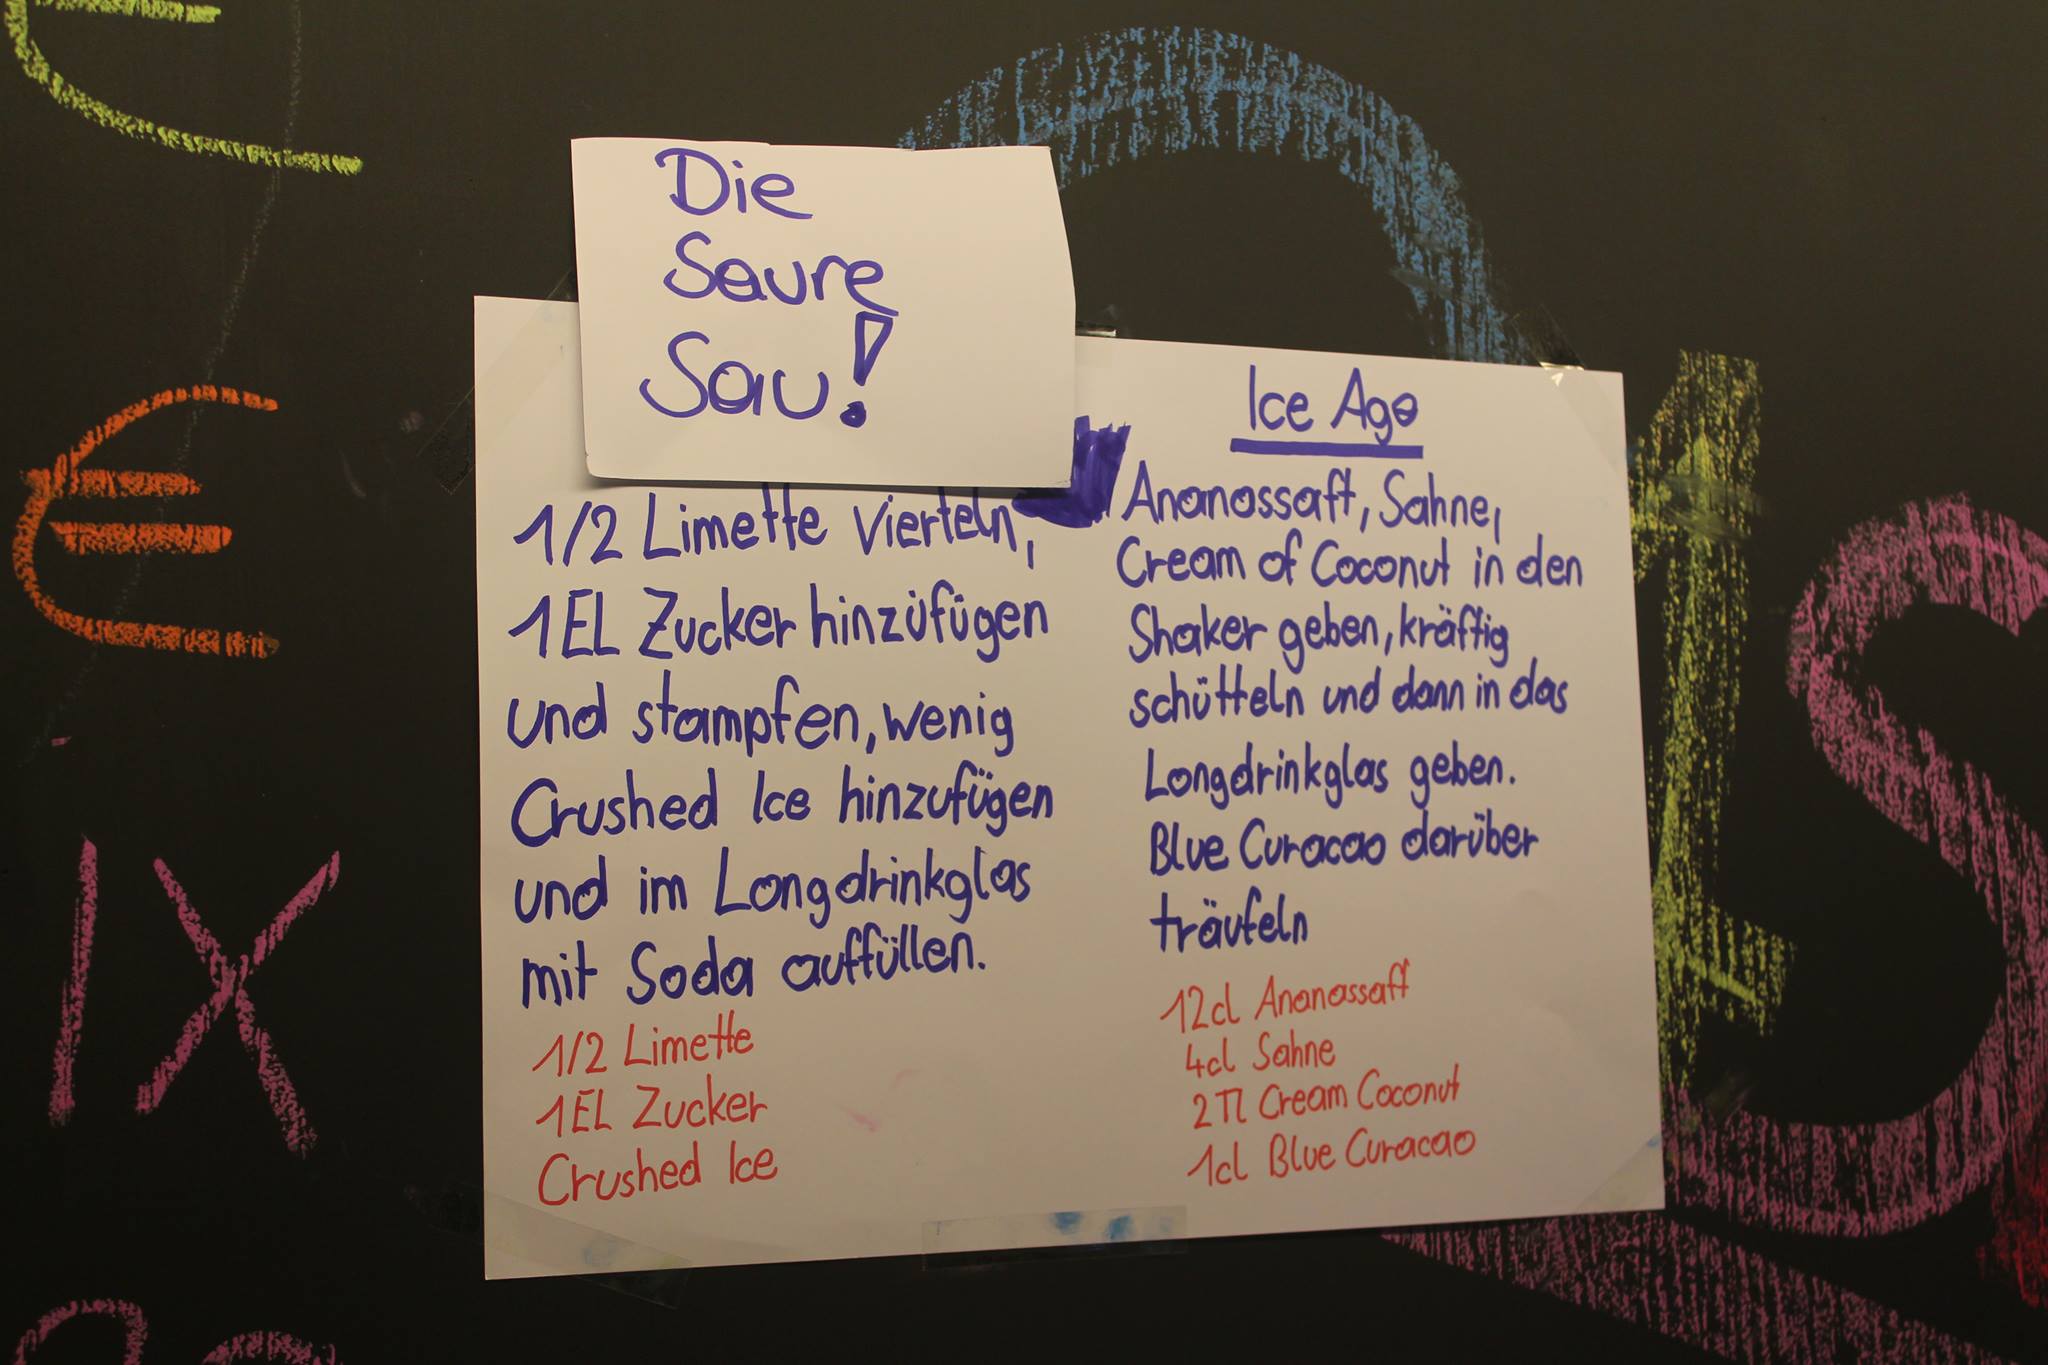 Die
Saure
Sau!
1/2 Limette vierteln,
1EL Zucker hinzufügen
und stampfen, wenig
Crushed Ice hinzufügen
und im Longdrinkglas
mit Soda auffüllen.
1/2 Limette
1EL Zucker
Crushed Ice
Ice Age
Ananassaft, Sahne,
Cream of Coconut in den
Shaker geben, kräftig
schütteln und dann in das
Longdrinkglas geben.
Blue Curacao darüber
träufeln
12cl Ananassaft
4cl Sahne
2Tl Cream Coconut
1cl Blue Curacao
€
€
IX